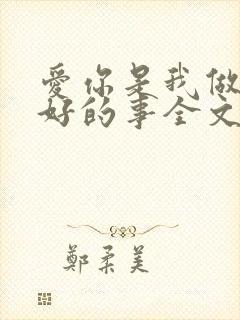 爱你是我做
好的事全文
鄭柔美